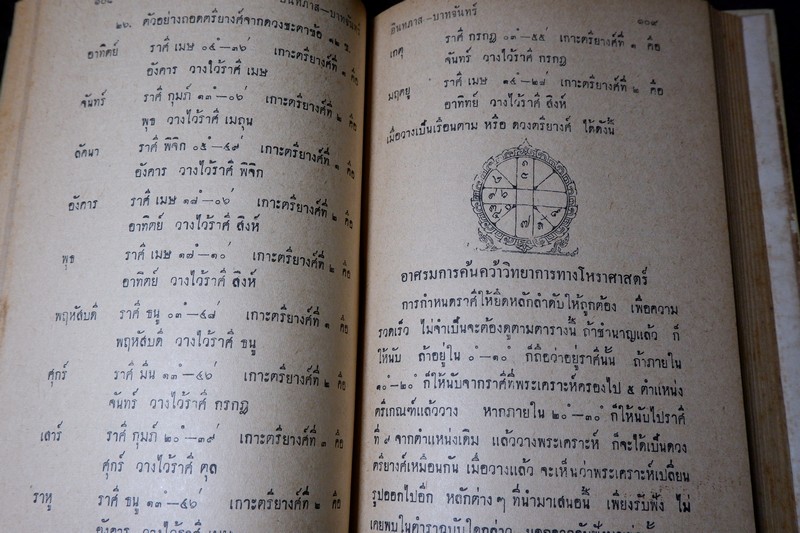 ๒๖. ตัวอย่างถอดตรียางค์จากดวงชะตาข้อ ๑๒ ข.
อาทิตย์ ราศี เมษ ๐๕°—๓๖' เกาะตรียางค์ที่ ๑ คือ
อังคาร วางไว้ราศี เมษ
จันทร์ ราศี กุมภ์ ๑๓°—๐๖' เกาะตรียางค์ที่ ๒ คือ
พุธ วางไว้ราศี เมถุน
ลัคนา ราศี พิจิก ๐๕°—๔๙' เกาะตรียางค์ที่ ๑ คือ
อังคาร วางไว้ราศี พิจิก
อังคาร ราศี เมษ ๑๘°—๐๖' เกาะตรียางค์ที่ ๒ คือ
อาทิตย์ วางไว้ราศี สิงห์
พุธ ราศี เมษ ๑๗°—๑๐' เกาะตรียางค์ที่ ๒ คือ
อาทิตย์ วางไว้ราศี สิงห์
พฤหัสบดี ราศี ธนู ๐๓°—๔๘' เกาะตรียางค์ที่ ๑ คือ
พฤหัสบดี วางไว้ราศี ธนู
ศุกร์ ราศี มีน ๑๓°—๔๖' เกาะตรียางค์ที่ ๒ คือ
จันทร์ วางไว้ราศี กรกฎ
เสาร์ ราศี กุมภ์ ๒๐°—๓๙' เกาะตรียางค์ที่ ๓ คือ
ศุกร์ วางไว้ราศี ตุล
ราหู ราศี ธนู ๑๓°—๔๖' เกาะตรียางค์ที่ ๒ คือ
อังคาร วางไว้ราศี เมษ
ตินทภาส—บาทจันทร์ ๑๐๙
เกตุ ราศี กรกฎ ๐๓°—๕๕' เกาะตรียางค์ที่ ๑ คือ
จันทร์ วางไว้ราศี กรกฎ
มฤตยู ราศี เมษ ๑๕°—๒๘' เกาะตรียางค์ที่ ๒ คือ
อาทิตย์ วางไว้ราศี สิงห์
เมื่อวางเป็นเรือนตาม หรือ ดวงตรียางค์ ได้ดังนี้
อาศรมการค้นคว้าวิทยาการทางโหราศาสตร์
การกำหนดราศีให้ยึดหลักลำดับให้ถูกต้อง เพื่อความ
รวดเร็ว ไม่จำเป็นจะต้องดูตามตารางนี้ ถ้าชำนาญแล้ว ก็
ให้นับ ถ้าอยู่ใน ๐°—๑๐° ก็ถือว่าอยู่ราศีนั้น ถ้าภายใน
๑๐°—๒๐° ก็ให้นับจากราศีที่พระเคราะห์ครองไป ๕ ตำแหน่ง
ตรีเกณฑ์แล้ววาง หากภายใน ๒๐°—๓๐° ก็ให้นับไปราศี
ที่ ๙ จากตำแหน่งเดิม แล้ววางพระเคราะห์ ก็จะได้เป็นดวง
ตรียางค์เหมือนกัน เมื่อวางแล้ว จะเห็นว่าพระเคราะห์เปลี่ยน
รูปออกไปอีก หลักต่างๆ ที่นำมาเสนอนี้ เพียงรับฟัง ไม่
เคยพบในตำราฉบับใดกล่าว